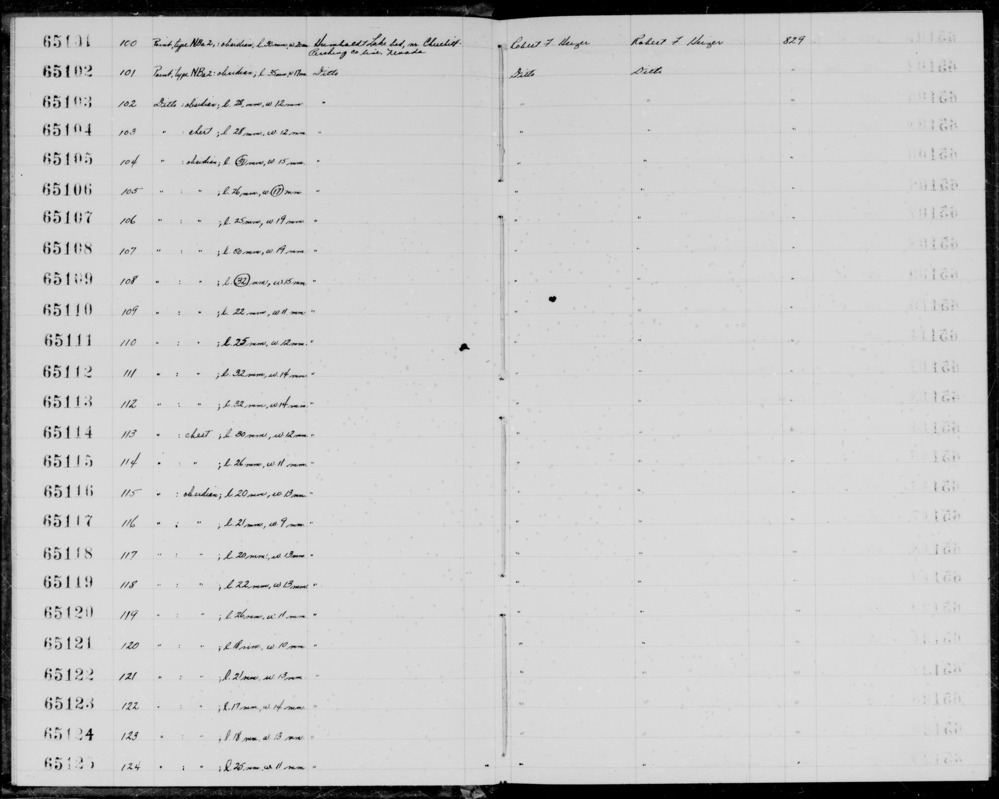 65101 100 Point, type NBa2: obsidian; l. 30 mm, w. 20 mm Humboldt Lake bed, nr. Churchill- Robert F Heizer Robert F Heizer 829
Pershing co. line, Nevada
65102 101 Point, type NBa2: obsidian; l. 35 mm, w 17 mm Ditto Ditto Ditto "
65103 102 Ditto : obsidian; l. 28 mm, w 12 mm " " " "
65104 103 " : chert ; l. 28 mm, w 12 mm " " " "
65105 104 " : obsidian; l. mm, w 15 mm " " " "
65106 105 " : " ; l. 26 mm, w (17) mm " " " "
65107 106 " : " ; l. 25 mm, w 19 mm " " " "
65108 107 " : " ; l. 30 mm, w 19 mm " " " "
65109 108 " : " ; l. (32) mm, w 15 mm " " " "
65110 109 " : " ; l. 22 mm, w 11 mm " " " "
65111 110 " : " ; l. 25 mm, w 12 mm " " " "
65112 111 " : " ; l. 32 mm, w 14 mm " " " "
65113 112 " : " ; l. 32 mm, w 14 mm " " " "
65114 113 " : chert ; l. 30 mm, w 12 mm " " " "
65115 114 " : " ; l. 26 mm, w 11 mm " " " "
65116 115 " : obsidian; l. 20 mm, w 13 mm " " " "
65117 116 " : " ; l. 21 mm, w 9 mm " " " "
65118 117 " : " ; l. 20 mm, w 13 mm " " " "
65119 118 " : " ; l. 22 mm, w 13 mm " " " "
65120 119 " : " ; l. 26 mm, w 11 mm " " " "
65121 120 " : " ; l. 18 mm, w 10 mm " " " "
65122 121 " : " ; l. 21 mm, w 13 mm " " " "
65123 122 " : " ; l. 17 mm, w 14 mm " " " "
65124 123 " : " ; l. 18 mm, w 13 mm " " " "
65125 124 " : " ; l. 25 mm, w 11 mm " " " "